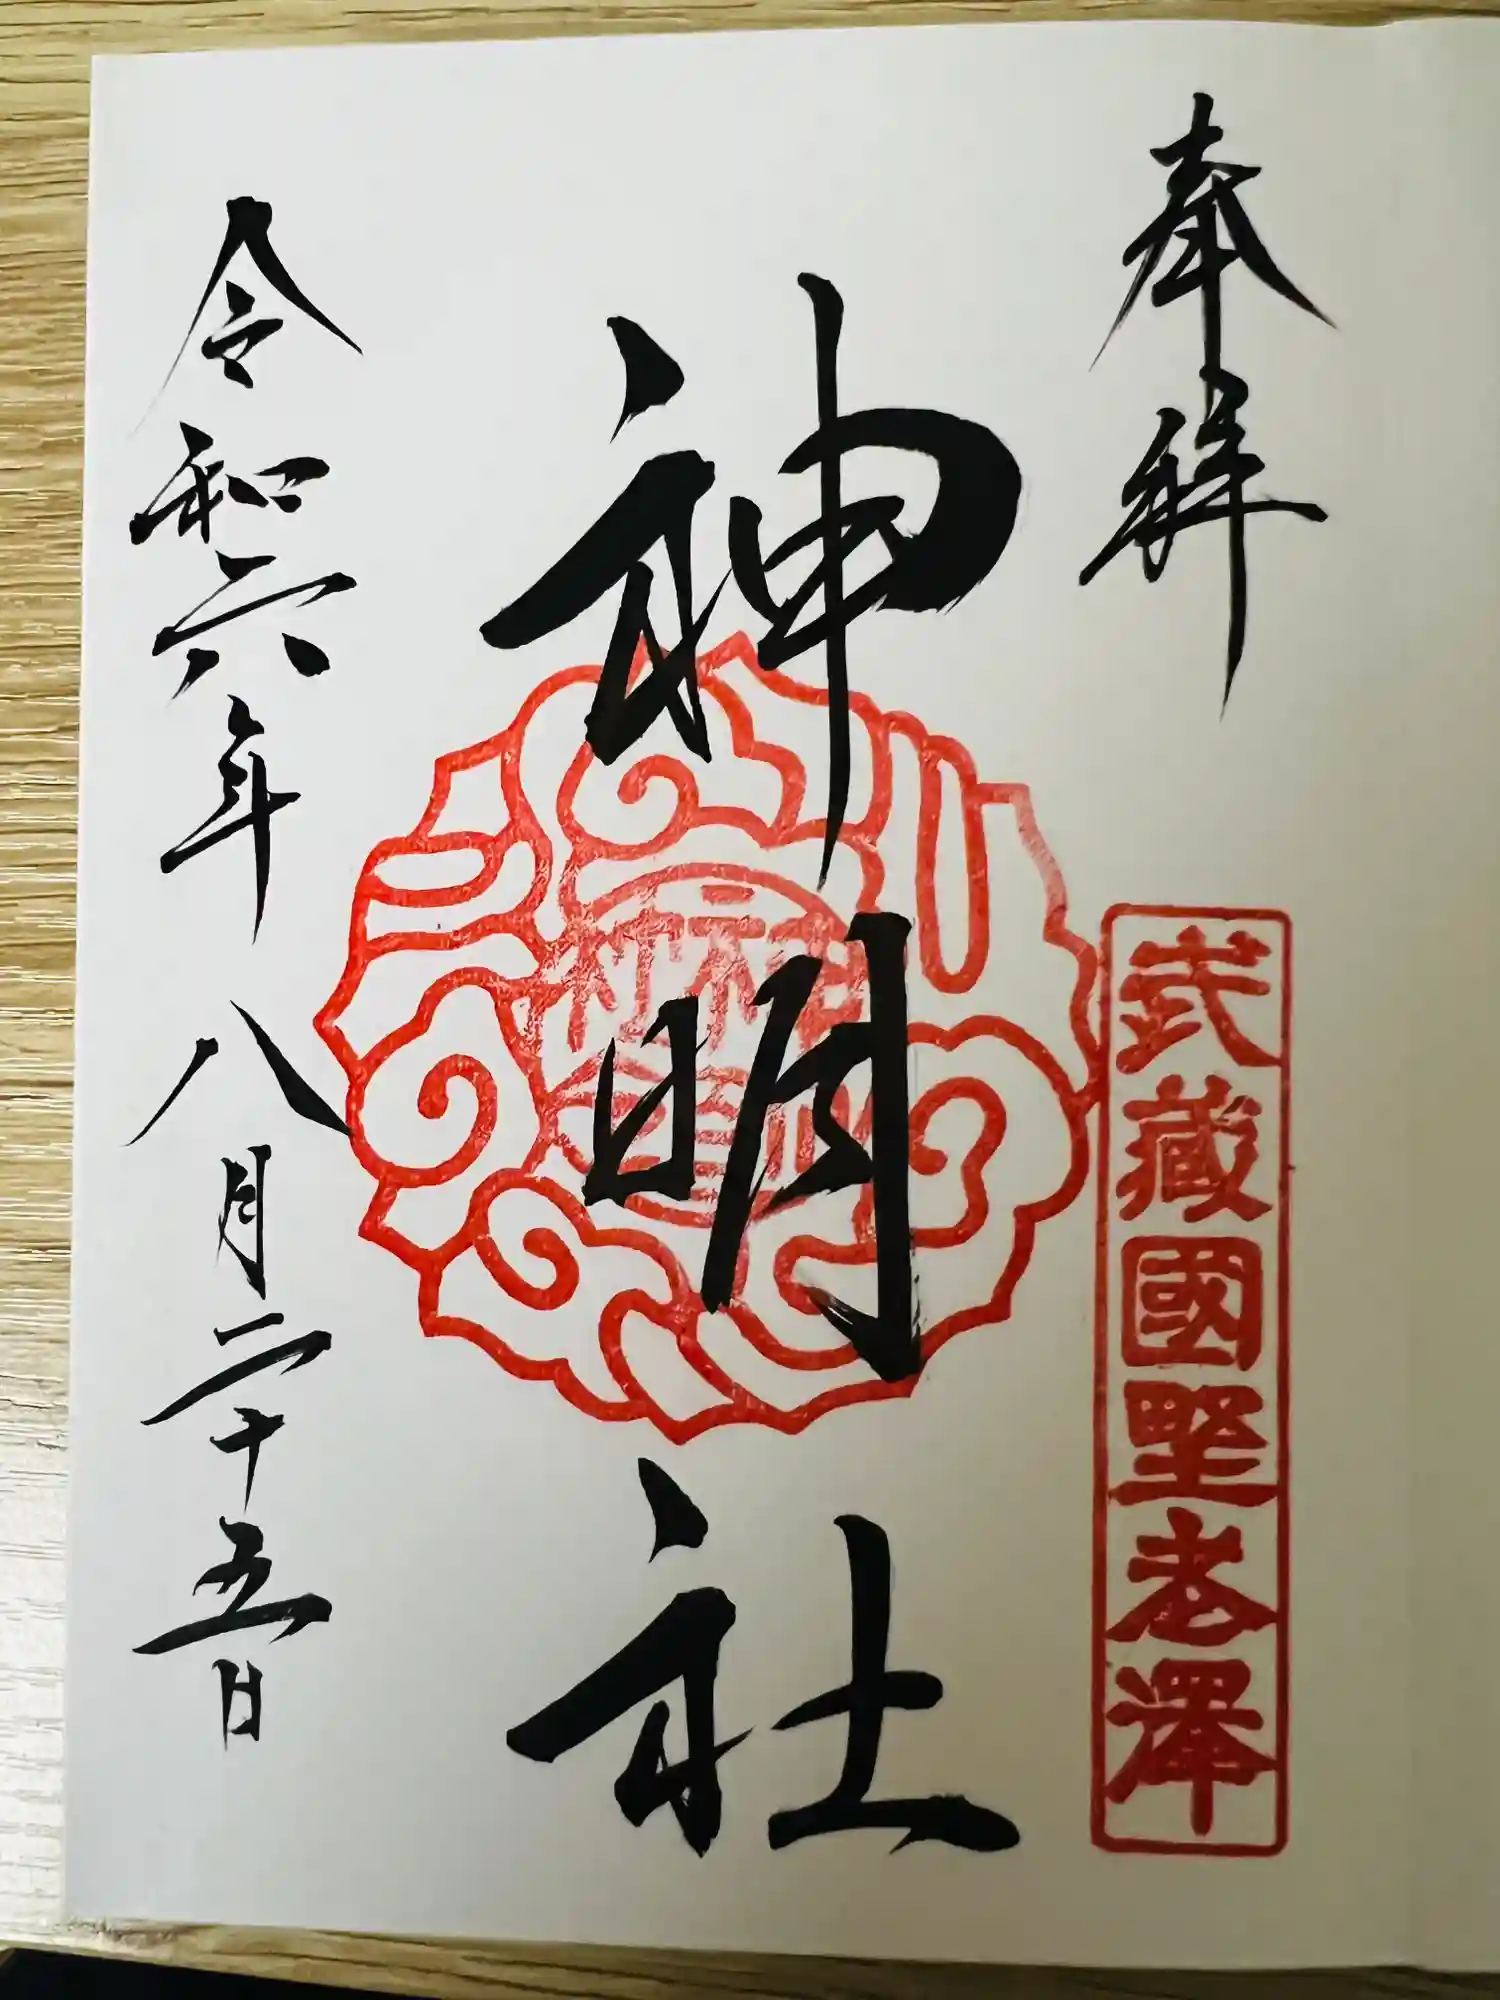 奉拝
武藏國野老澤
神明社
令和六年八月二十五日